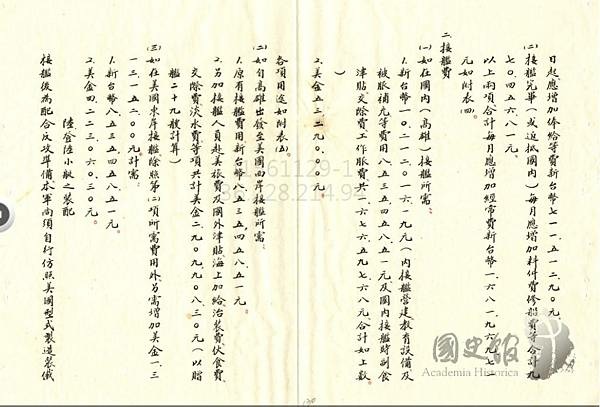 日起應增加俸給等費新台幣七一一、五一二、九〇元。
(二)接艦完畢(或返抵國內)每月應增加料件費修船費等合計九
七〇、四五六、八一元。
以上兩項合計每月應增加經常費新台幣一、六八一、九六九、七一
元如附表(四)。
二、接艦費
(一)如在國內(高雄)接艦所需:
1.新台幣一〇、二一二、〇一六、一九元(內接艦營建教育設備及
被服補充等費用八、五三五、四五八、五一元及國內接艦時副食
津貼交際費工作服費共一、六七六、五九七、六八元合計如上數
)
2.美金五三二、九〇〇、〇〇元
各項用途如附表(五)。
(二)如自高雄出發至美國西岸接艦所需:
1.原有接艦費用新台幣八、五三五、四五八、五一元。
2.另加接艦人員赴美旅費及國外津貼海上加給治裝費伙食費
交際費淡水費等項共計美金二、九〇九、九〇八、三〇元(以贈
艦二十九艘計算)
(三)如在美國東岸接艦除照第(二)項所需費用外另需增加美金一、三
一三、一五二、〇〇元計需:
1.新台幣八、五三五、四五八、五一元。
2.美金四、二二三、〇六〇、三〇元。
陸、登陸小艇之裝配
接艦後為配合反攻準備本軍尚須自行仿照美國型式製造裝儎
國史館
Academia Historica